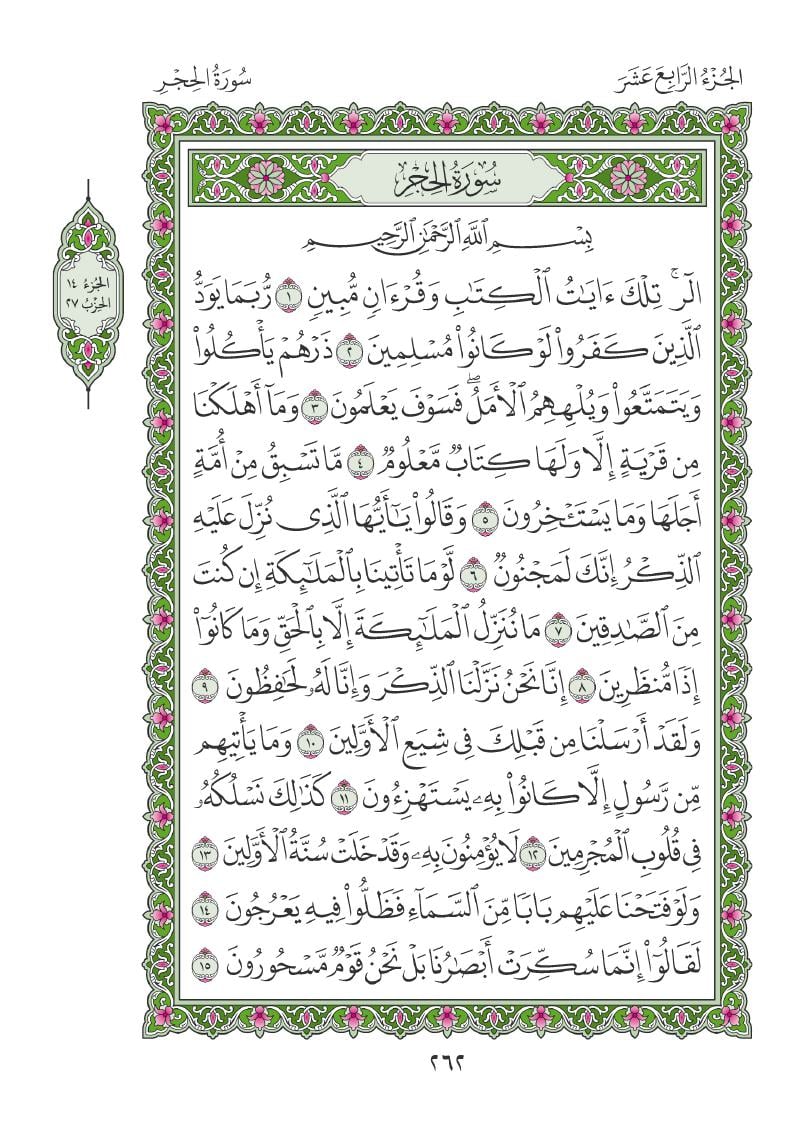 الجُزْءُ الرَّابِعَ عَشَرَ
سُورَةُ الحِجْرِ
سُورَةُ الحِجْرِ
الجُزءُ ١٤
الحِزْبُ ٢٧
بِسْمِ ٱللَّهِ ٱلرَّحْمَٰنِ ٱلرَّحِيمِ
الٓرۚ تِلْكَ ءَايَٰتُ ٱلْكِتَٰبِ وَقُرْءَانٍ مُّبِينٍ ١ رُّبَمَا يَوَدُّ
ٱلَّذِينَ كَفَرُوا۟ لَوْ كَانُوا۟ مُسْلِمِينَ ٢ ذَرْهُمْ يَأْكُلُوا۟
وَيَتَمَتَّعُوا۟ وَيُلْهِهِمُ ٱلْأَمَلُۖ فَسَوْفَ يَعْلَمُونَ ٣ وَمَآ أَهْلَكْنَا
مِن قَرْيَةٍ إِلَّا وَلَهَا كِتَابٌ مَّعْلُومٌ ٤ مَّا تَسْبِقُ مِنْ أُمَّةٍ
أَجَلَهَا وَمَا يَسْتَـْٔخِرُونَ ٥ وَقَالُوا۟ يَٰٓأَيُّهَا ٱلَّذِى نُزِّلَ عَلَيْهِ
ٱلذِّكْرُ إِنَّكَ لَمَجْنُونٌ ٦ لَّوْمَا تَأْتِينَا بِٱلْمَلَٰٓئِكَةِ إِن كُنتَ
مِنَ ٱلصَّٰدِقِينَ ٧ مَا نُنَزِّلُ ٱلْمَلَٰٓئِكَةَ إِلَّا بِٱلْحَقِّ وَمَا كَانُوٓا۟
إِذًا مُّنظَرِينَ ٨ إِنَّا نَحْنُ نَزَّلْنَا ٱلذِّكْرَ وَإِنَّا لَهُۥ لَحَٰفِظُونَ ٩
وَلَقَدْ أَرْسَلْنَا مِن قَبْلِكَ فِى شِيَعِ ٱلْأَوَّلِينَ ١٠ وَمَا يَأْتِيهِم
مِّن رَّسُولٍ إِلَّا كَانُوا۟ بِهِۦ يَسْتَهْزِءُونَ ١١ كَذَٰلِكَ نَسْلُكُهُۥ
فِى قُلُوبِ ٱلْمُجْرِمِينَ ١٢ لَا يُؤْمِنُونَ بِهِۦ وَقَدْ خَلَتْ سُنَّةُ ٱلْأَوَّلِينَ ١٣
وَلَوْ فَتَحْنَا عَلَيْهِم بَابًا مِّنَ ٱلسَّمَآءِ فَظَلُّوا۟ فِيهِ يَعْرُجُونَ ١٤
لَقَالُوٓا۟ إِنَّمَا سُكِّرَتْ أَبْصَٰرُنَا بَلْ نَحْنُ قَوْمٌ مَّسْحُورُونَ ١٥
٢٦٢